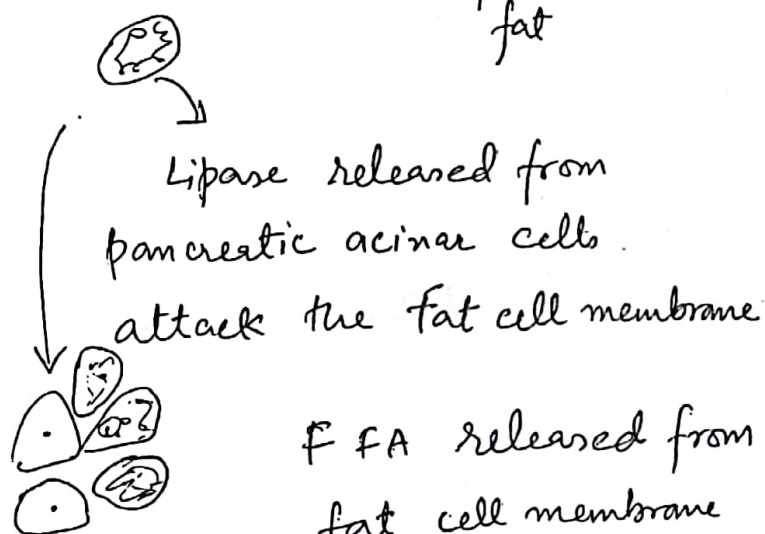 fat
Lipase released from
pancreatic acinar cells.
attack the fat cell membrane
FFA released from
fat cell membrane